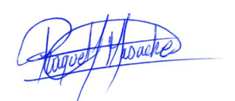 Raquel Masache